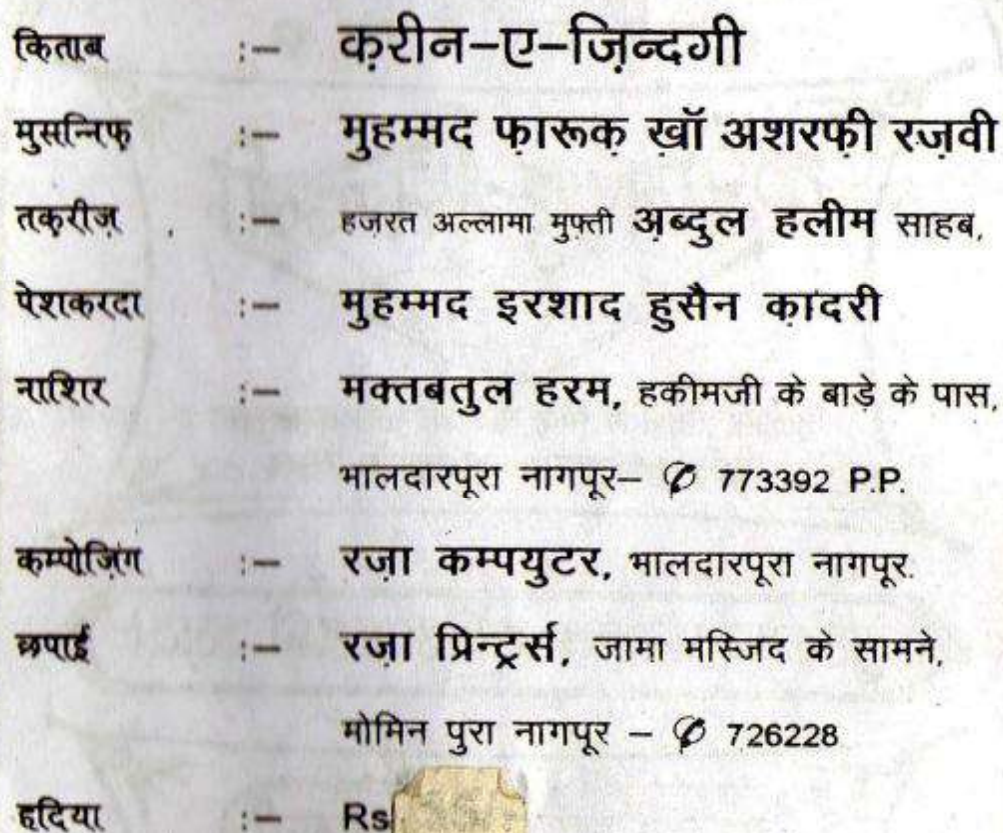 किताब :– क़रीन-ए-ज़िन्दगी
मुसन्निफ़ :– मुहम्मद फ़ारूक़ खॉ अशरफ़ी रज़वी
तक़रीज़ :– हज़रत अल्लामा मुफ़्ती अ़ब्दुल हलीम साहब,
पेशकरदा :– मुहम्मद इरशाद हुसैन क़ादरी
नाशिर :– मक्तबतुल हरम, हकीमजी के बाड़े के पास,
भालदारपूरा नागपूर– ✆ 773392 P.P.
कम्पोज़िंग :– रज़ा कम्पयुटर, भालदारपूरा नागपूर.
छपाई :– रज़ा प्रिन्ट्रर्स, जामा मस्जिद के सामने,
मोमिन पुरा नागपूर – ✆ 726228
हदिया :– Rs